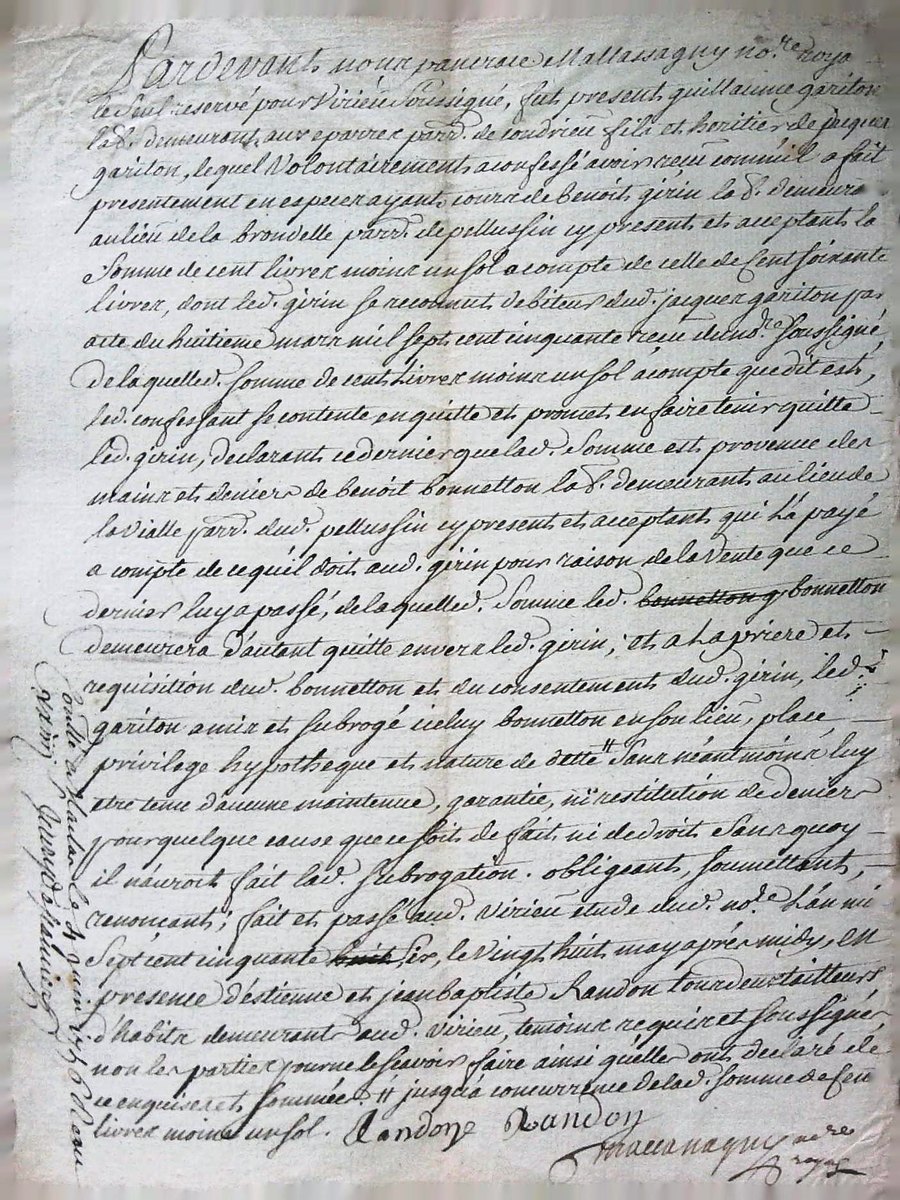 Pardevant nous pancrace Mallassagny no.re roya
le seul reservé pour Virieu soussigné, fut present guillaume gariton
lab.r demeurant aux eparres parr.e de Condrieu fils et heritier de jacques
gariton, lequel Volontairement a confessé avoir receu comme il a fait
presentement en especes ayants cours de benoit girin lab.r demeurant
au lieu de la brondelle parr.e de pellussin cy present et acceptant la
Somme de cent livres moins un sol a compte de celle de Cent soixante
livres, dont led. girin se reconnut debiteur dud. jacques gariton par
acte du huitieme mars mil sept cent cinquante receu dud no.re soussigné
de laquelle d. somme de cent livres moins un sol a compte que dit est,
led. confessant se contente en quitte et promet en faire tenir quitte
led. girin, declarant ce dernier que lad. Somme est provenue des
mains et deniers de benoit bonnetton lab.r demeurant au lieu de
la Vialle parr.e dud. pellussin cy present et acceptant qui l'a payé
a compte de ce qu'il doit aud. girin pour raison de la Vente que ce
dernier luy a passé, de laquelle d. Somme led. bonnetton g bonnetton
demeurera d'autant quitte envers led. girin; et a la priere et
requisition dud. bonnetton et du consentement dud. girin, led.
gariton a mis et subrogé iceluy bonnetton en son lieu, place
privilege hypotheque et nature de dette # sans néantmoins luy
etre tenu d'aucune maintenue, garantie, ni restitution de deniers
pour quelque cause que ce soit de fait ni de droit sans quoy
il n'auroit fait lad. subrogation. obligeant, soumettant,
renoncant; fait et passé aud. Virieu etude dud. no.re L'an mil
Sept cent cinquante huit six, le Vingt huit may aprés midy, en
presence d'estienne et jean baptiste Randon tous deux tailleurs
d'habits demeurant aud. Virieu, temoins requis et soussignés
non les parties pour ne le scavoir faire ainsi qu'elles ont declaré de
ce enquises et sommées. # jusqu'a concurrence de lad. somme de cent
livres moins un sol. Randon Randon
Mallassagny no.re
royal
Conllé a le 4 juin 1756 Receu